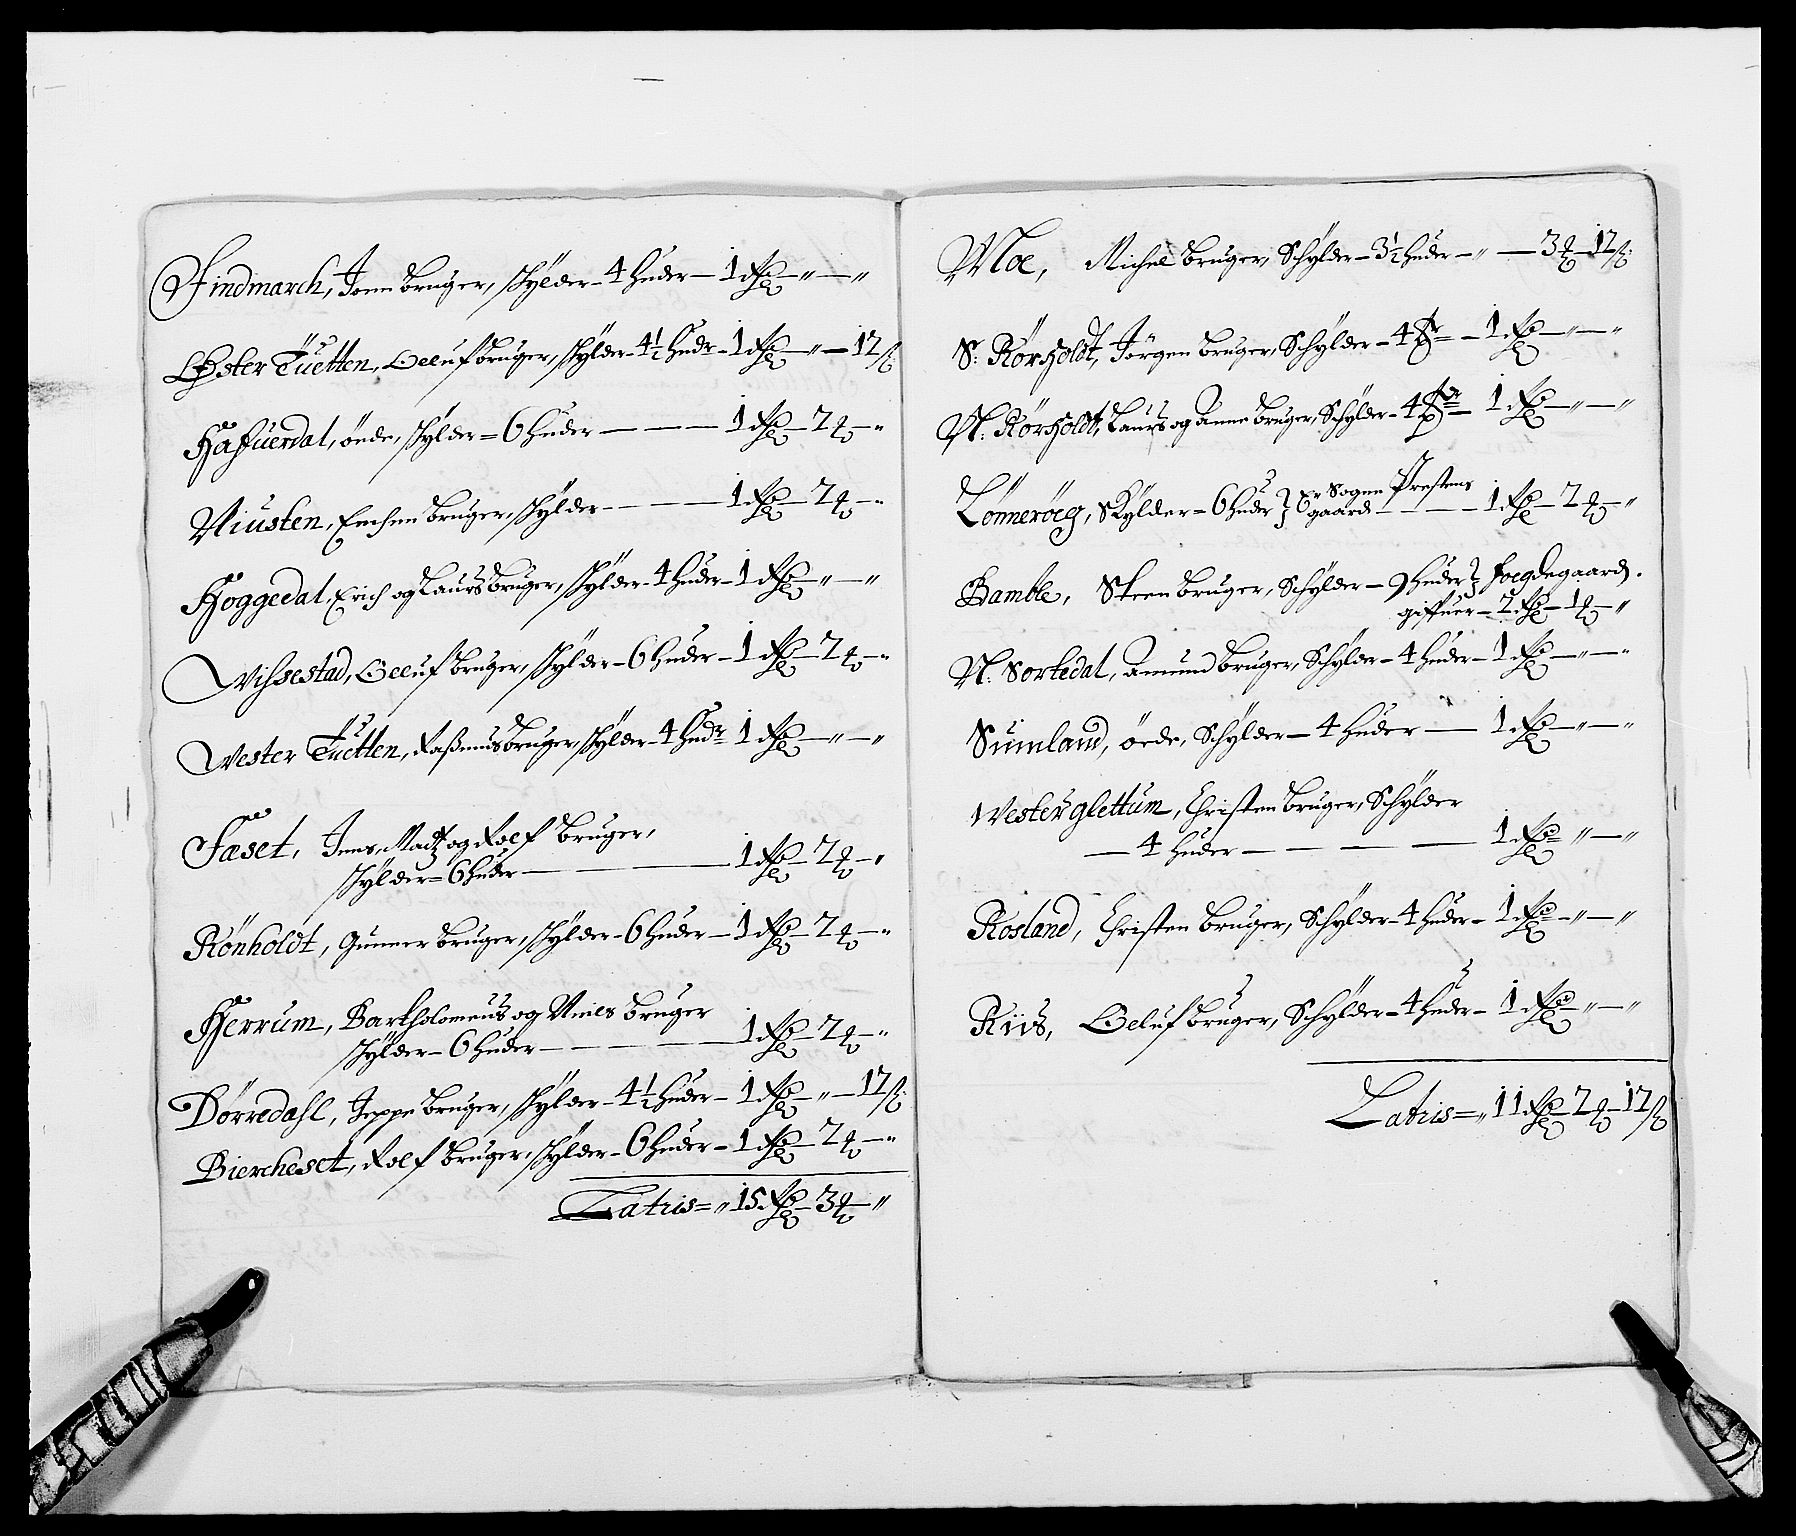 Findmarch, Joen bruger, skylder - 4 huder - 1 Rdr - " - "
Øster Tuetten, Oeluf bruger, skylder - 4½ hudr - 1 Rdr - " - 12 s
Hafuerdal, öede, skylder = 6 huder - - - 1 Rdr - 2 ort - "
Niusten, Erichen bruger, skylder - - - - 1 Rdr - 2 ort - "
Hoggedal, Erich og Laurs bruger, skylder - 4 huder - 1 Rdr - " - "
Wissestad, Oeluf bruger, skylder - 6 huder - 1 Rdr - 2 ort - "
Wester Tuetten, Rassmus bruger, skylder - 4 hudr 1 Rdr - " - "
Fæset, Jens, Madtz og Rolf bruger,
skylder = 6 huder - 1 Rdr 2 ort - "
Rönholdt, Gunner bruger, skylder - 6 huder - 1 Rdr - 2 ort - "
Herrum, Bartholomeus og Niels bruger
skylder - 6 huder - - - - 1 Rdr - 2 ort - "
Dörredahl, Jeppe bruger, skylder - 4½ huder - 1 Rdr - " - 12 s
Biercheset, Rolf bruger, skylder - 6 huder - 1 Rdr - 2 ort - "
Latris = " 15 Rdr - 3 ort - "
Moe, Michel bruger, Schylder - 3½ huder - " - 3 ort - 12 s
S: Rörholdt, Jörgen bruger, Schylder - 4 - 1 Rdr - " - "
N: Rörholdt, Laurs og Anne bruger, Schylder - 4 - 1 Rdr - " - "
Lönneröeg, Skylder = 6 huder } Er Sogne Prestens
gaard - - - 1 Rdr - 2 ort - "
Bamble, Steen bruger, Schylder - 9 huder } foegdegaard.
giffuer - 2 Rdr - 1 ort - "
N: Sortedal, Amund bruger, Schylder - 4 huder - 1 Rdr - " - "
Sumland, öede, Schylder - 4 huder - 1 Rdr - " - "
Wester glettum, Christen bruger, Schylder
- 4 huder - - - - 1 Rdr " - "
Rosland, Christen bruger, Schylder - 4 huder - 1 Rdr - " - "
Riis, Oeluf bruger, Schylder - 4 huder - 1 Rdr - " - "
Latris = " 11 Rdr - 2 ort - 12 s